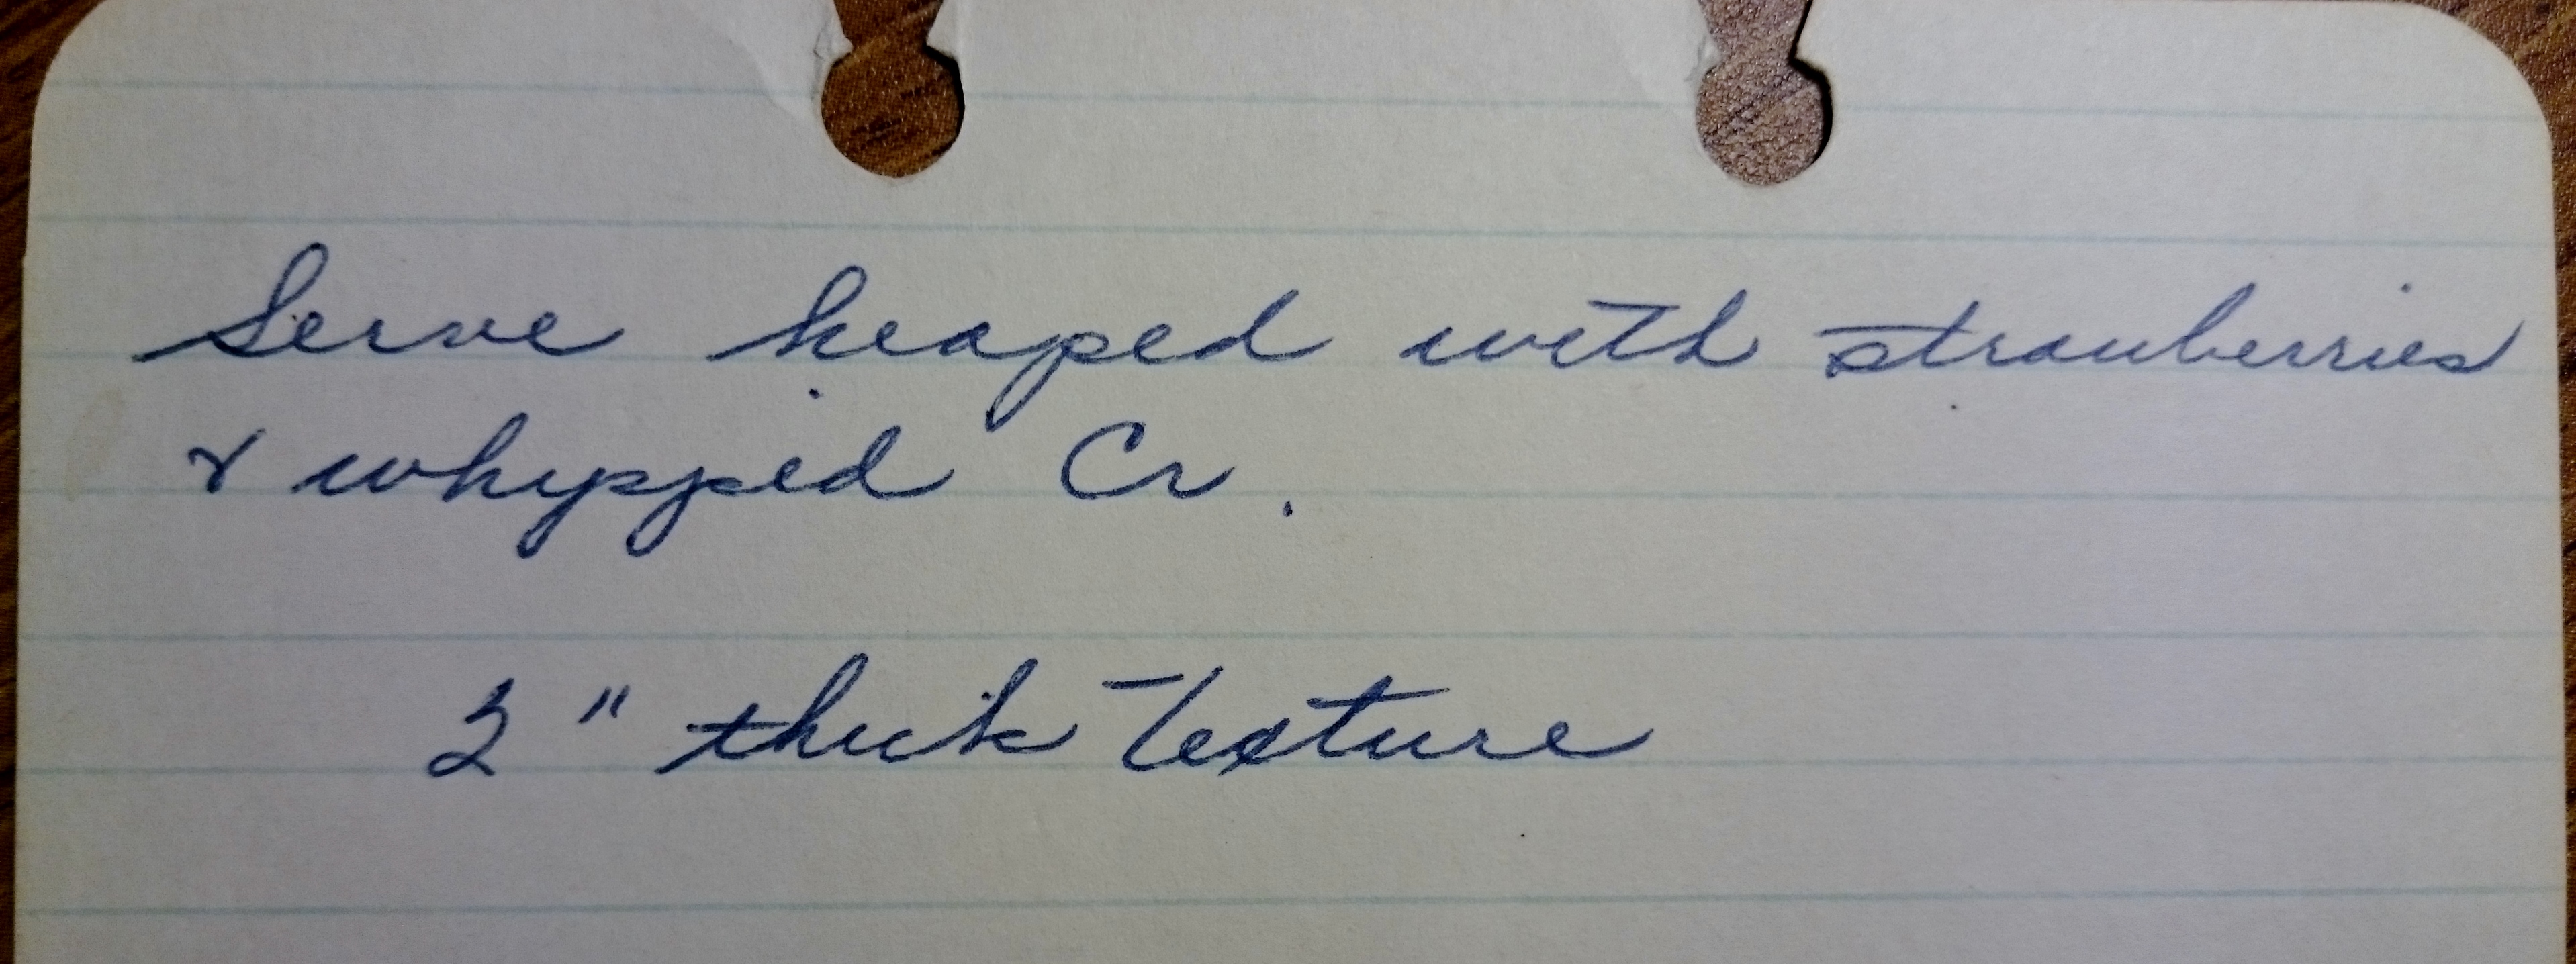 Serve heaped with strawberries
& whypped Cr.
2" thick Texture